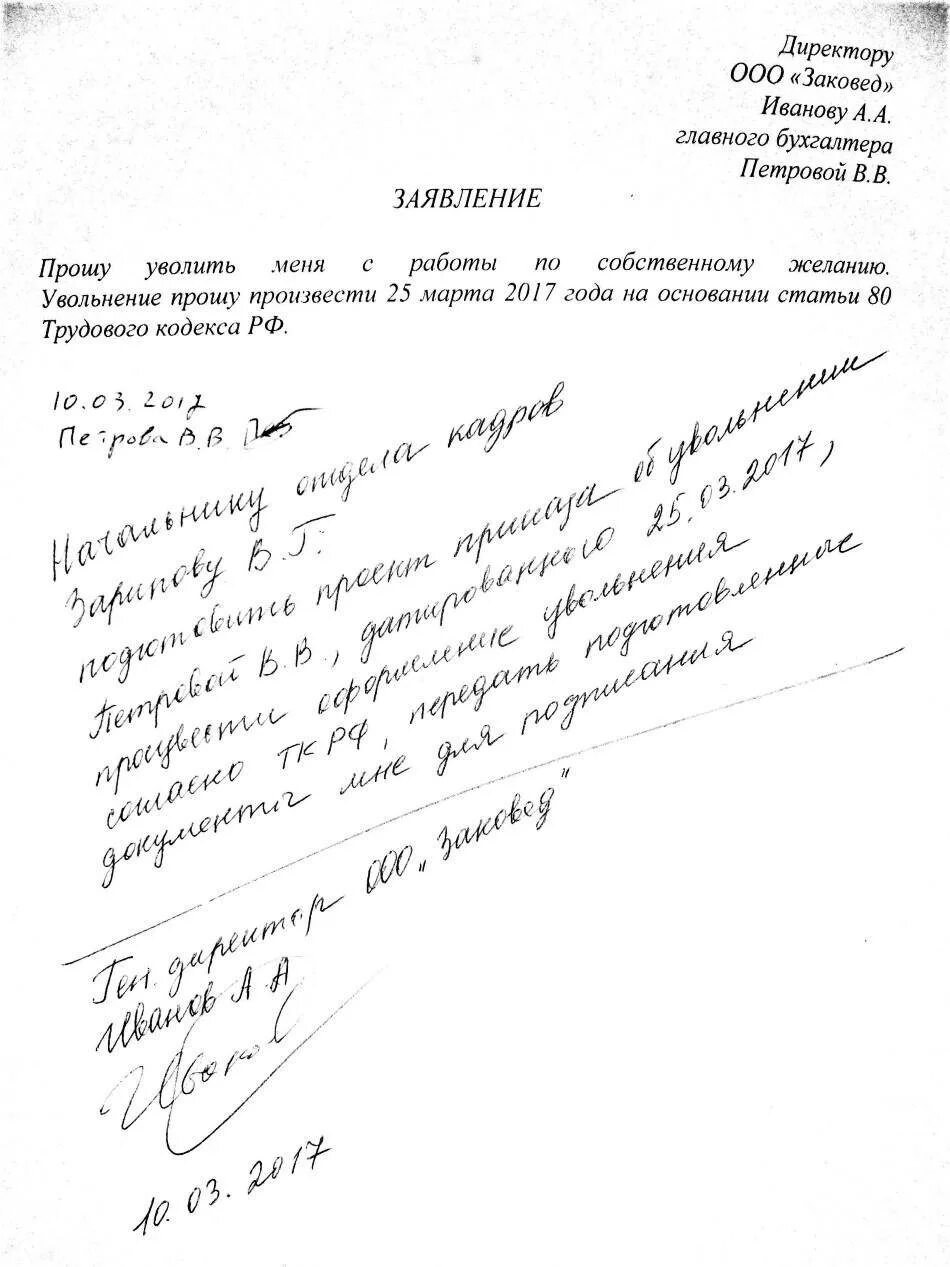 Директору
ООО «Заковед»
Иванову А.А.
главного бухгалтера
Петровой В.В.
ЗАЯВЛЕНИЕ
Прошу уволить меня с работы по собственному желанию.
Увольнение прошу произвести 25 марта 2017 года на основании статьи 80
Трудового кодекса РФ.
10.03.2017
Петрова В.В.
Начальнику отдела кадров
Зарипову В.Г:
подготовить проект приказа об увольнении
Петровой В.В., датированного 25.03.2017,
произвести оформление увольнения
согласно ТК РФ, передать подготовленные
документы мне для подписания
Ген. директор ООО „Заковед"
Иванов А.А
Иванов
10.03.2017